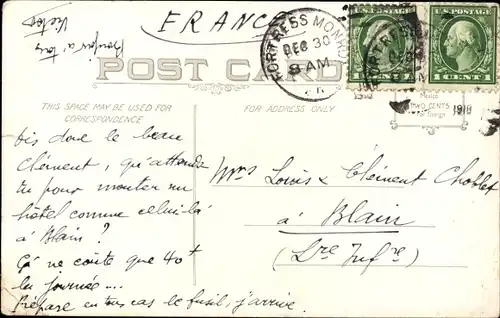 FRANCE
Bonjour à tous
Victor
FORTRESS MONROE
DEC 30
8 AM
U.S. POSTAGE
1 CENT 1
U.S. POSTAGE
1 CENT 1
POST CARD
THIS SPACE MAY BE USED FOR
CORRESPONDENCE
FOR ADDRESS ONLY
Mexico
TWO CENTS
for Foreign
1918
1918
Dis donc le beau
Clément, qu'attends
tu pour monter un
hôtel comme celui-là
à Blain?
Ça ne coûte que 40+
la journée...
Prépare en tous cas le fusil, j'arrive.
Mrs Louis & Clément Choblet
à Blain
(Lre Infre)